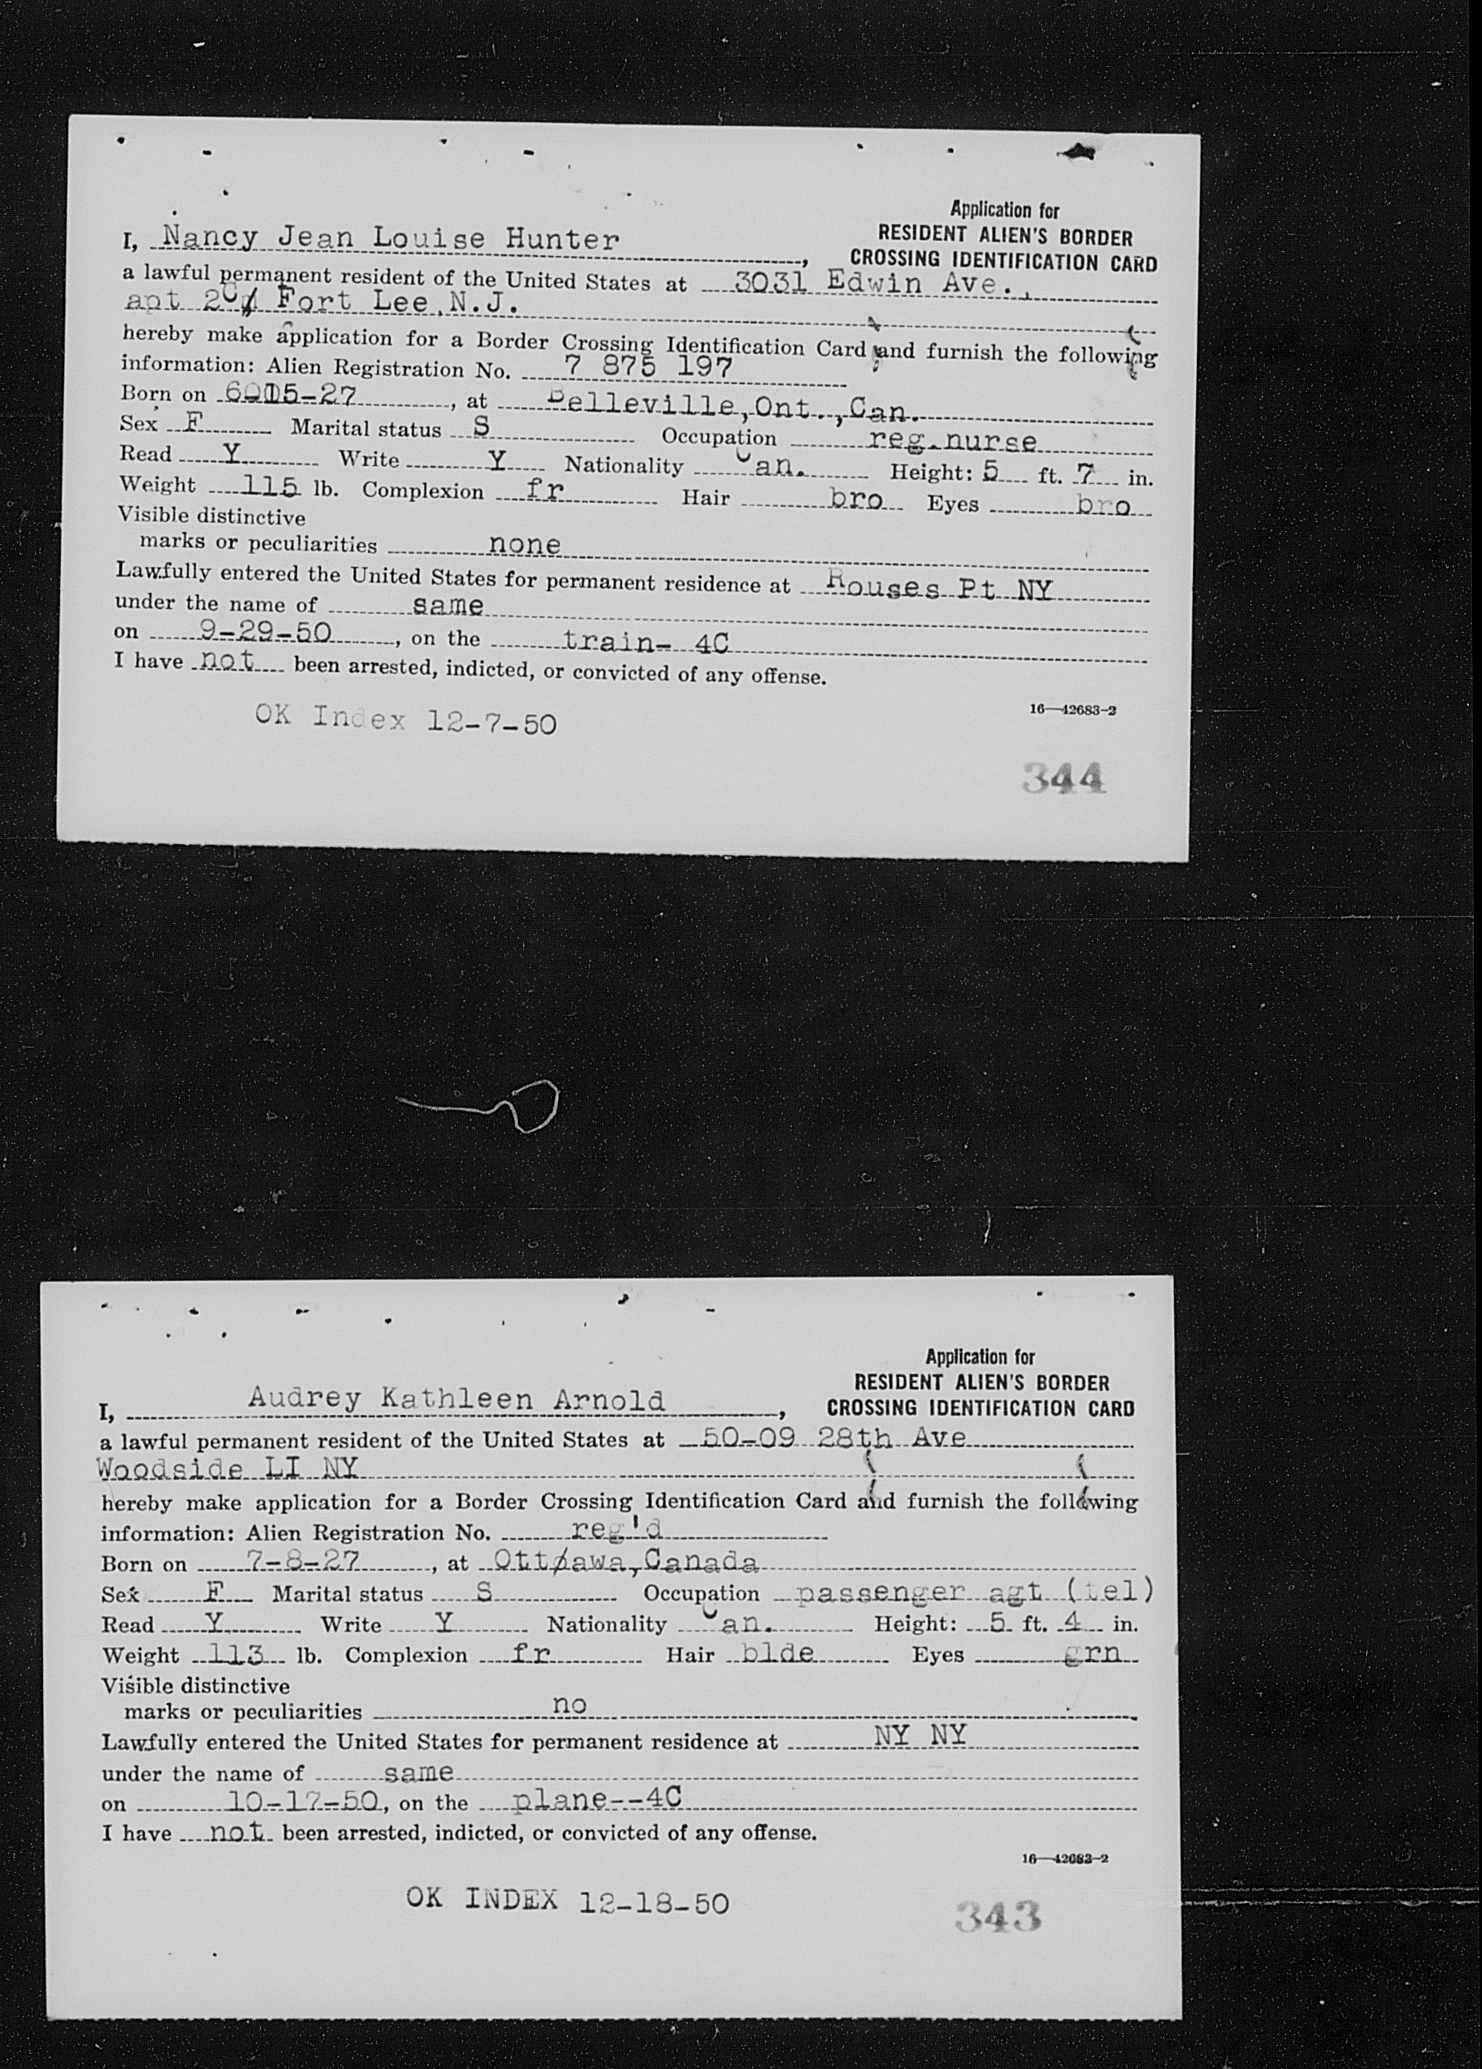 Application for
RESIDENT ALIEN'S BORDER
CROSSING IDENTIFICATION CARD
I, Nancy Jean Louise Hunter,
a lawful permanent resident of the United States at 3031 Edwin Ave.,
apt 2C Fort Lee, N.J.
hereby make application for a Border Crossing Identification Card and furnish the following
information: Alien Registration No. 7 875 197
Born on -27, at Belleville, Ont., Can.
Sex F Marital status S Occupation reg. nurse
Read Y Write Y Nationality Can. Height: 5 ft. 7 in.
Weight 115 lb. Complexion fr Hair bro Eyes bro
Visible distinctive
marks or peculiarities none
Lawfully entered the United States for permanent residence at Rouses Pt NY
under the name of same
on 9-29-50, on the train- 4C
I have not been arrested, indicted, or convicted of any offense.
16—42683-2
OK Index 12-7-50
344
Application for
RESIDENT ALIEN'S BORDER
CROSSING IDENTIFICATION CARD
I, Audrey Kathleen Arnold,
a lawful permanent resident of the United States at 50-09 28th Ave
Woodside LI NY
hereby make application for a Border Crossing Identification Card and furnish the following
information: Alien Registration No. reg'd
Born on 7-8-27, at Ottawa, Canada
Sex F Marital status S Occupation passenger agt (tel)
Read Y Write Y Nationality Can. Height: 5 ft. 4 in.
Weight 113 lb. Complexion fr Hair blde Eyes grn
Visible distinctive
marks or peculiarities no
Lawfully entered the United States for permanent residence at NY NY
under the name of same
on 10-17-50, on the plane--4C
I have not been arrested, indicted, or convicted of any offense.
16—42683-2
OK INDEX 12-18-50
343